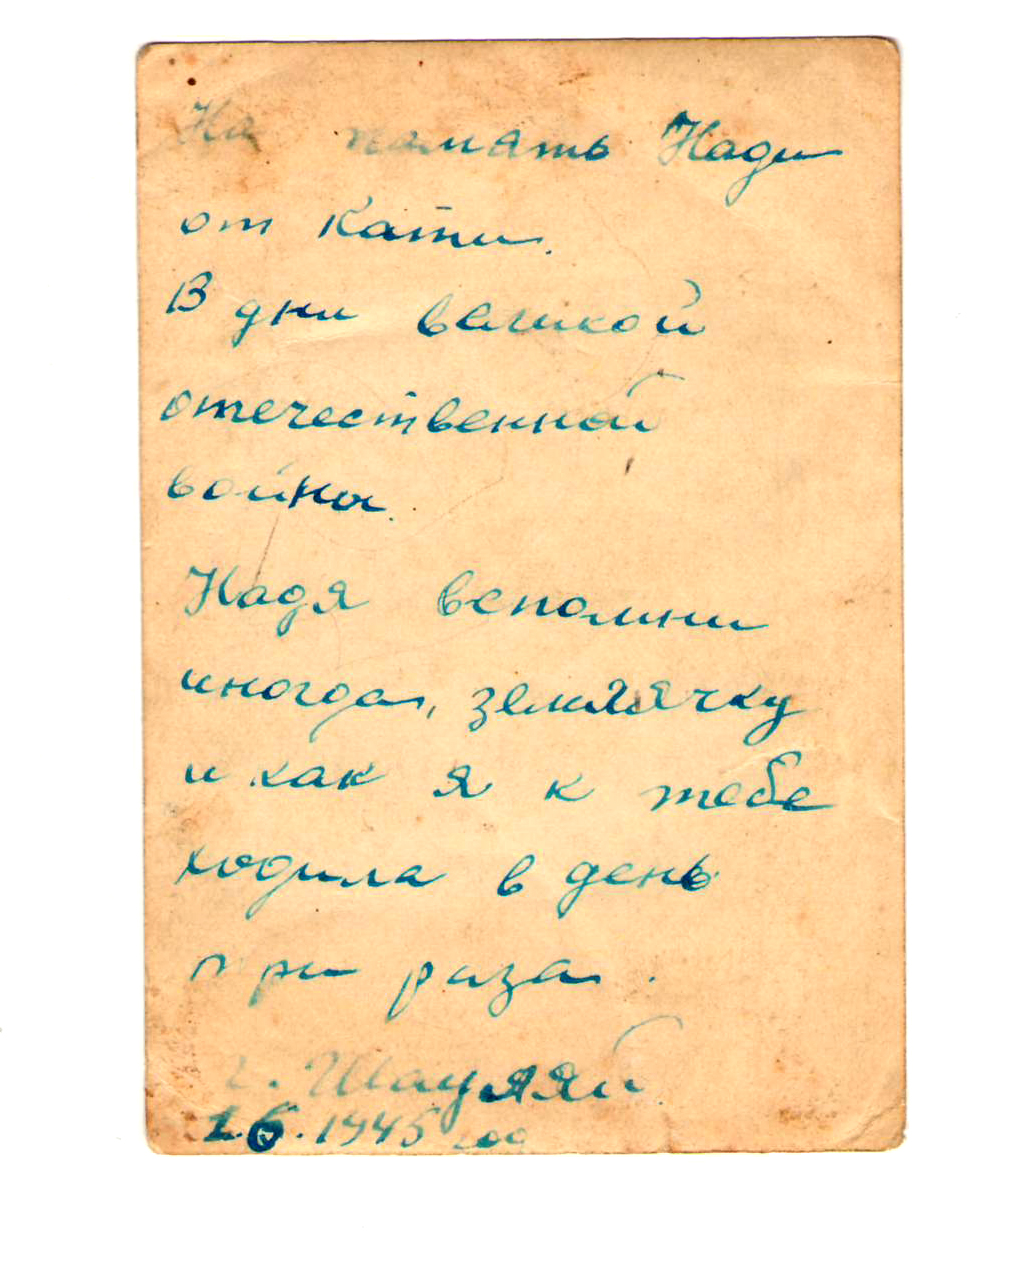 На память Нади
от Кати.
В дни великой
отечественной
войны.
Надя вспомни
иногда, землячку
и как я к тебе
ходила в день
три раза.
г. Шауляй
1.6.1945 год